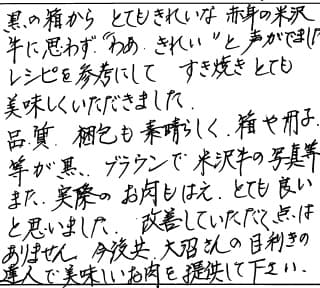 黒の箱から とてもきれいな 赤身の米沢
牛に思わず、"わあ きれい"と声がでました
レシピを参考にして すき焼きとても
美味しくいただきました.
品質. 梱包も素晴らしく. 箱や冊子.
等が黒、ブラウンで米沢牛の写真等
また. 実際のお肉もはえ. とても良い
と思いました. 改善していただく点は
ありません. 今後共. 大沼さんの目利きの
達人で美味しいお肉を提供して下さい.